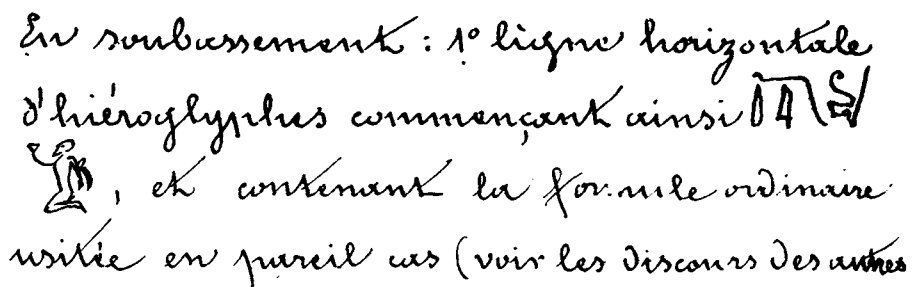 En soubassement : 1° ligne horizontale
d'hiéroglyphes commençant ainsi
, et contenant la formule ordinaire
usitée en pareil cas (voir les discours des autres